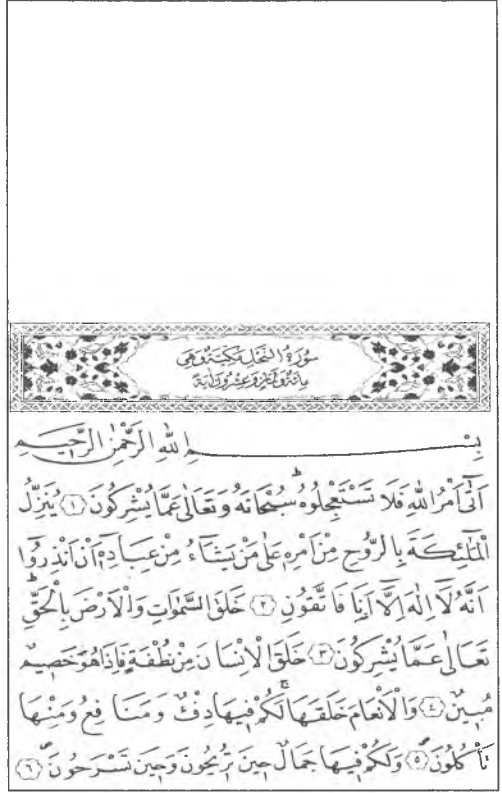 سُورَةُ النَّحْلِ مَكِّيَّةٌ وَهِيَ
مِائَةٌ وَثَمَانٍ وَعِشْرُونَ آيَةً
بِسْمِ اللهِ الرَّحْمٰنِ الرَّحِيمِ
اَتٰٓى اَمْرُ اللهِ فَلَا تَسْتَعْجِلُوهُۜ سُبْحَانَهُ وَتَعَالٰى عَمَّا يُشْرِكُونَ ﴿١﴾ يُنَزِّلُ
الْمَلٰٓئِكَةَ بِالرُّوحِ مِنْ اَمْرِهٖ عَلٰى مَنْ يَشَٓاءُ مِنْ عِبَادِهٖٓ اَنْ اَنْذِرُٓوا
اَنَّهُ لَٓا اِلٰهَ اِلَّٓا اَنَا۬ فَاتَّقُونِ ﴿٢﴾ خَلَقَ السَّمٰوَاتِ وَالْاَرْضَ بِالْحَقِّۜ
تَعَالٰى عَمَّا يُشْرِكُونَ ﴿٣﴾ خَلَقَ الْاِنْسَانَ مِنْ نُطْفَةٍ فَاِذَا هُوَ خَصِيمٌ
مُبِينٌ ﴿٤﴾ وَالْاَنْعَامَ خَلَقَهَاۚ لَكُمْ فِيهَا دِفْءٌ وَمَنَافِعُ وَمِنْهَا
تَأْكُلُونَۖ ﴿٥﴾ وَلَكُمْ فِيهَا جَمَالٌ حِينَ تُرِيحُونَ وَحِينَ تَسْرَحُونَۖ ﴿٦﴾